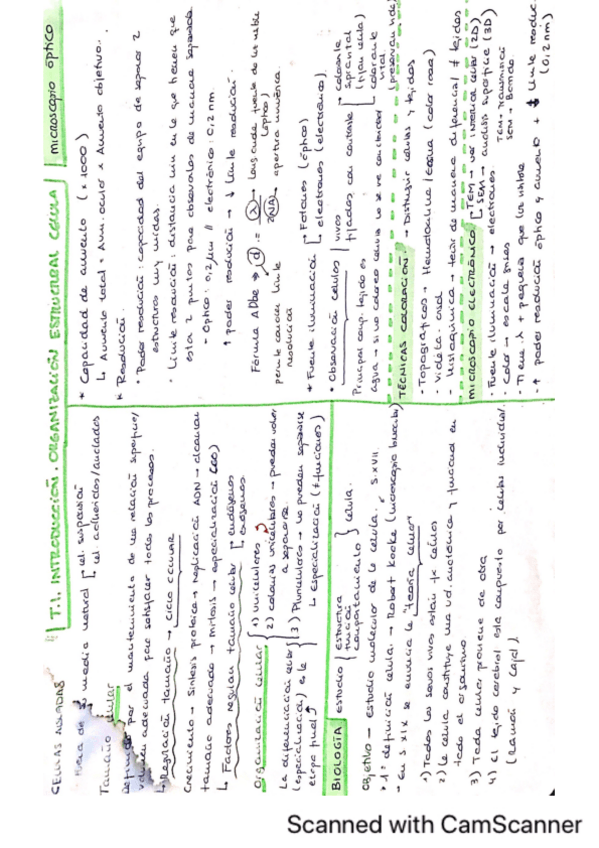 T.1. INTRODUCCIÓN. ORGANIZACIÓN ESTRUCTURAL CELULA
CELULAS AISLADAS
medio natural
cel. suspensión
cel. adheridas/ancladas
Tamaño celular
por el mantenimiento de una relación superficie/
volumen adecuada para satisfacer todos los procesos.
↳ Regulación tamaño → ciclo celular
Crecimiento → síntesis proteica → replicación ADN → alcanzar
tamaño adecuado → mitosis → especialización (GO)
↳ Factores regulan tamaño celular
endógenos
exógenos
Organización celular
1) unicelulares
2) colonias unicelulares → pueden volver
a separarse
3) Pluricelulares → no pueden separarse
↳ Especialización (≠ funciones)
La diferenciación celular
(especialización) es la
etapa final
BIOLOGÍA
estudio
estructura
función
comportamiento
célula.
Objetivo → estudio molecular de la célula.
S.XVII
* 1ª definición célula → Robert Hooke (microscopio
- En S XIX se enuncia la "teoría celular"
1) Todos los seres vivos están células
2) La célula constituye una ud. anatómica y funcional en
todo el organismo
3) Toda célula proviene de otra
4) El tejido cerebral está compuesto por células individual.
(Ramón y Cajal)
MICROSCOPIO ÓPTICO
* Capacidad de aumento (x1000)
↳ Aumento total = Aum. ocular x Aumento objetivo.
* Resolución
· Poder resolución: capacidad del equipo de separar 2
estructuras muy unidas.
· Límite resolución: distancia mín en la que tienen que
estar 2 puntos para observarlos de manera separada
- Óptico: 0,2 µm // electrónico: 0,2 nm
↑ poder resolución → ↓ límite resolución
Fórmula Abbe → d = λ / 2NA
λ → long onda fuente de luz visible
(óptico)
NA → apertura numérica
permite conocer límite
resolución
* Fuente iluminación
Fotones (óptico)
electrones (electrónico)
* Observación células
vivas
fijadas con colorante
colorante
supravital
colorante
vital
Principal comp. tejido es
agua → si no coloreo célula no se ve
TÉCNICAS COLORACIÓN → Distinguir células y tejidos
- Topográficas → Hematoxilina/Eosina (color rosa)
- Histoquímica → teñir de manera diferencial ≠ tejidos
MICROSCOPIO ELECTRÓNICO
TEM → ver interior célula (2D)
SEM → análisis superficie (3D)
TEM → transmisión
SEM → Barrido
- Fuente iluminación → electrones
- Color → escala grises
- Tiene λ + pequeña que luz visible
- ↑ poder resolución óptico y aumento + ↓ límite resoluc.
(0,2 nm)
Scanned with CamScanner